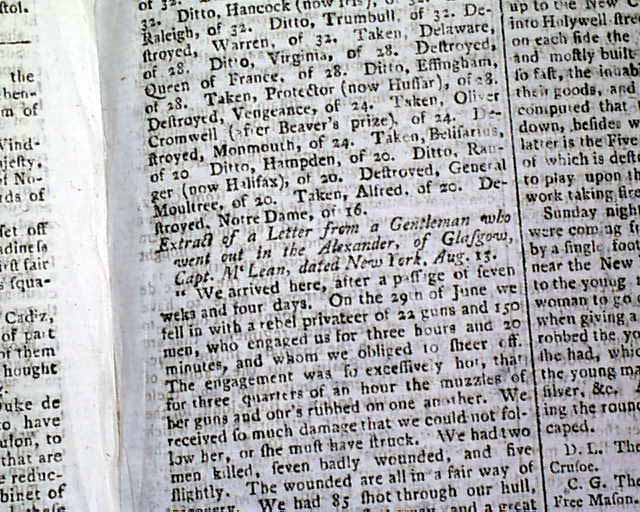 stol.
the
hen-
m of
Wind-
ajesty,
f No-
rds of
set off
adiness
irst fair
s squa-
Cadiz,
of part
of them
hought
Duke de
to have
oulon, to
that are
e reduc-
binet of
these
of 32. Ditto, Hancock (now Iris), of 32.
32. Ditto, Trumbull, of 32. De-
Raleigh, of 32. Ditto, Delaware,
stroyed, Warren, of 32. Taken,
of 28. Ditto, Virginia, of 28. Destroyed,
Queen of France, of 28. Ditto, Effingham,
of 28. Taken, Protector (now Hussar), of 28.
Destroyed, Vengeance, of 24. Taken, Oliver
Cromwell (after Beaver's prize), of 24. De-
stroyed, Monmouth, of 24. Taken, Belisarius,
of 20 Ditto, Hampden, of 20. Ditto, Ran-
ger (now Halifax), of 20. Destroyed, General
Moultree, of 20. Taken, Alfred, of 20. De-
stroyed, Notre Dame, of 16.
Extract of a Letter from a Gentleman who
went out in the Alexander, of Glasgow,
Capt. M'Lean, dated New York, Aug. 13.
" We arrived here, after a passage of seven
weks and four days. On the 29th of June we
fell in with a rebel privateer of 22 guns and 150
men, who engaged us for three hours and 20
minutes, and whom we obliged to sheer off.
The engagement was so excessively hot, that
for three quarters of an hour the muzzles of
her guns and our's rubbed on one another. We
received so much damage that we could not fol-
low her, or she must have struck. We had two
men killed, seven badly wounded, and five
slightly. The wounded are all in a fair way of
recovery. We had 85 shot through our hull,
and a great
up to the New C
into Holywell stree
on each side the
and mostly built
so fast, the inhabi
their goods, and
computed that
down, besides w
latter is the Five
of which is dest
to play upon the
work taking fire
Sunday night
were coming f
by a single foot
near the New
to the young
woman to go
when giving a
robbed the yo
she had, which
the young ma
silver, &c.
ing the roun
caped.
D. L. The
Crusoe.
C. G. The
Free Mason.